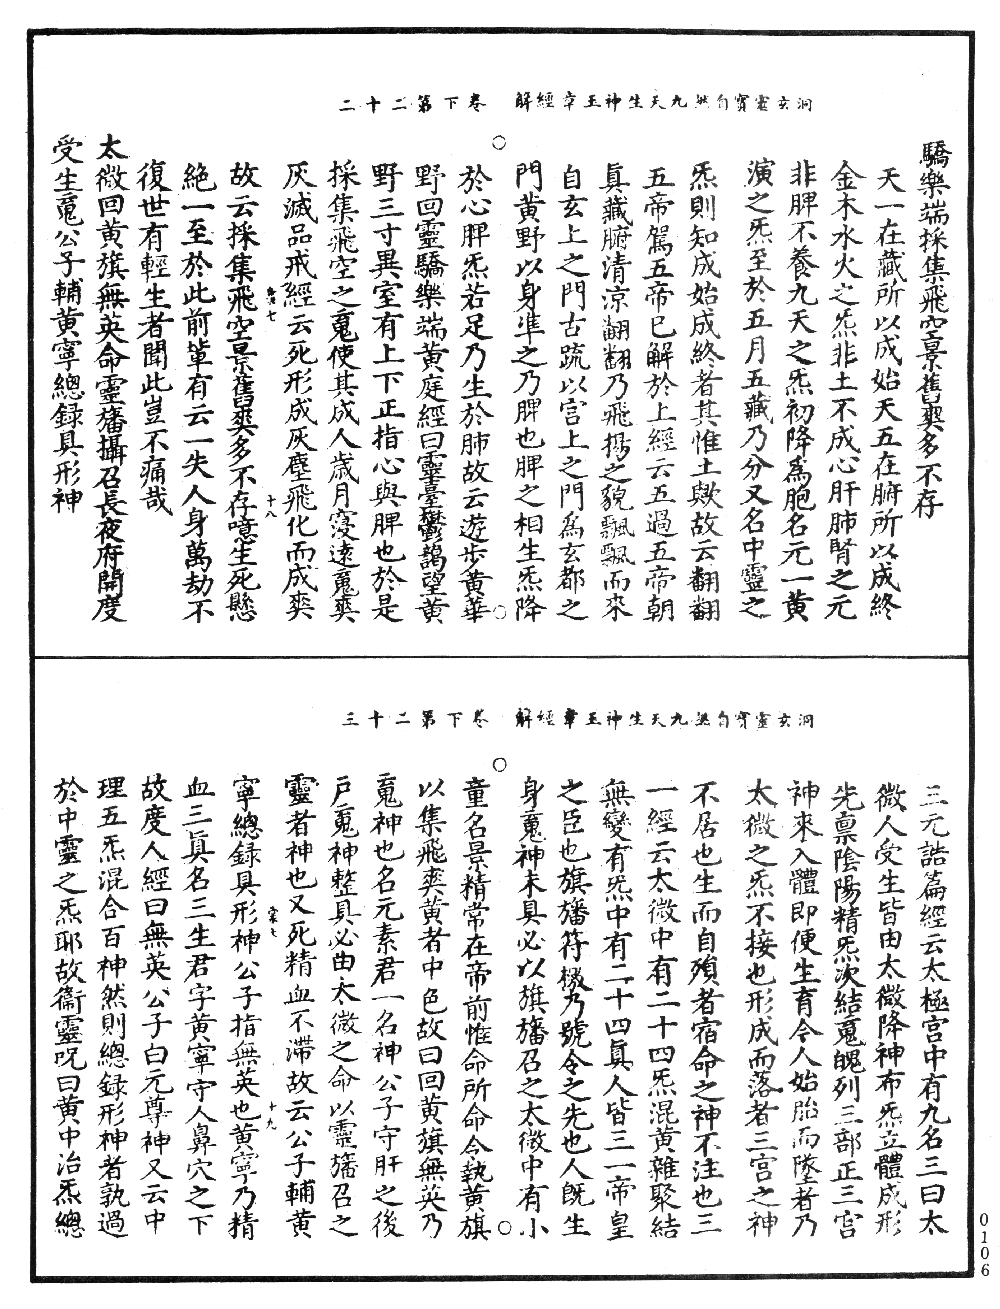 洞玄靈寶自然九天生神玉章經解　卷下第二十二
驕樂端採集飛空景舊爽多不存
天一在藏所以成始天五在腑所以成終
金木水火之炁非土不成心肝肺腎之元
非脾不養九天之炁初降為胞名元一黃
演之炁至於五月五藏乃分又名中靈之
炁則知成始成終者其惟土歟故云翻翻
五帝駕五帝已解於上經云五過五帝朝
真藏腑清凉翻翻乃飛揚之貌飄飄而來
自玄上之門古疏以宫上之門為玄都之
門黃野以身準之乃脾也脾之相生炁降
於心脾炁若足乃生於肺故云遊步黃華
野回靈驕樂端黃庭經曰靈臺鬱藹望黃
野三寸異室有上下正指心與脾也於是
採集飛空之䰟使其成人歲月寖遠䰟爽
灰滅品戒經云死形成灰塵飛化而成爽
故云採集飛空景舊爽多不存噫生死懸
絕一至於此前輩有云一失人身萬劫不
復世有輕生者聞此豈不痛哉
太微回黃旗無英命靈旛攝召長夜府開度
受生䰟公子輔黃寧總錄具形神
十八
洞玄靈寶自然九天生神玉章經解　卷下第二十三
三元誥篇經云太極宫中有九名三曰太
微人受生皆由太微降神布炁立體成形
先禀陰陽精炁次結䰟魄列三部正三宫
神來入體即便生育令人始胎而墜者乃
太微之炁不接也形成而落者三宫之神
不居也生而自殞者宿命之神不注也三
一經云太微中有二十四炁混黃雜聚結
無變有炁中有二十四真人皆三一帝皇
之臣也旗旛符檄乃號令之先也人既生
身䰟神未具必以旗旛召之太微中有小
童名景精常在帝前惟命所命今執黃旗
以集飛爽黃者中色故曰回黃旗無英乃
䰟神也名元素君一名神公子守肝之後
戶䰟神整具必由太微之命以靈旛召之
靈者神也又死精血不滯故云公子輔黃
寧總錄具形神公子指無英也黃寧乃精
血三真名三生君字黃寧守人鼻穴之下
故度人經曰無英公子白元尊神又云中
理五炁混合百神然則總錄形神者孰過
於中靈之炁耶故衞靈呪曰黃中治炁總
十九
0106